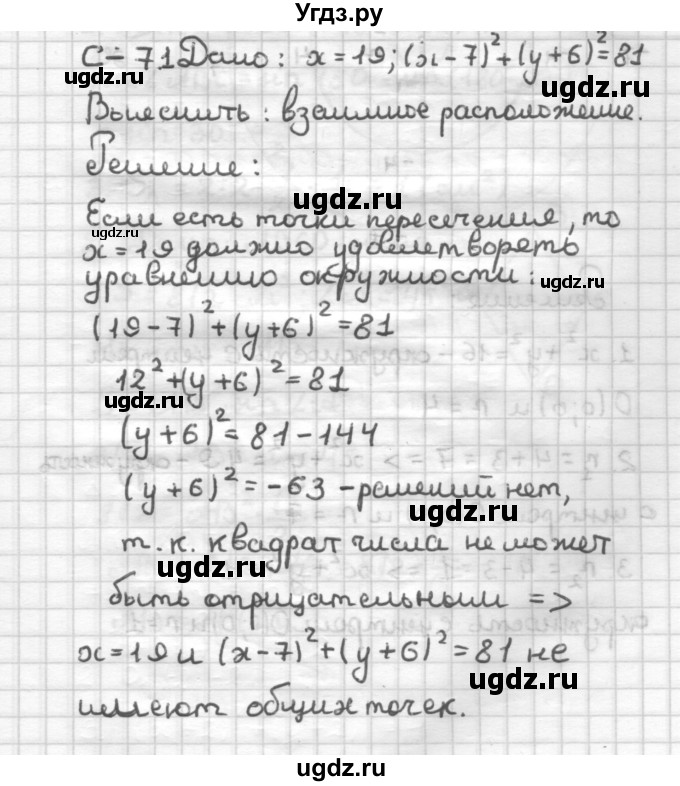 Угдз.ру
С-71 Дано: x=19; (x-7)²+(y+6)²=81
ugdz.ru
Выяснить: взаимное расположение.
ugdz.ru
Решение:
ugdz.ru
Если есть точки пересечения, то
ugdz.ru
x=19 должно удовлетворять
уравнению окружности:
ugdz.ru
(19-7)²+(y+6)²=81
ugdz.ru
12²+(y+6)²=81
ugdz.ru
(y+6)²=81-144
(y+6)²=-63 -решений нет,
ugdz.ru
т.к. квадрат числа не может
ugdz.ru
быть отрицательным =>
ugdz.ru
x=19 и (x-7)²+(y+6)²=81 не
ugdz.ru
имеют общих точек.
ugdz.ru
ugdz.ru